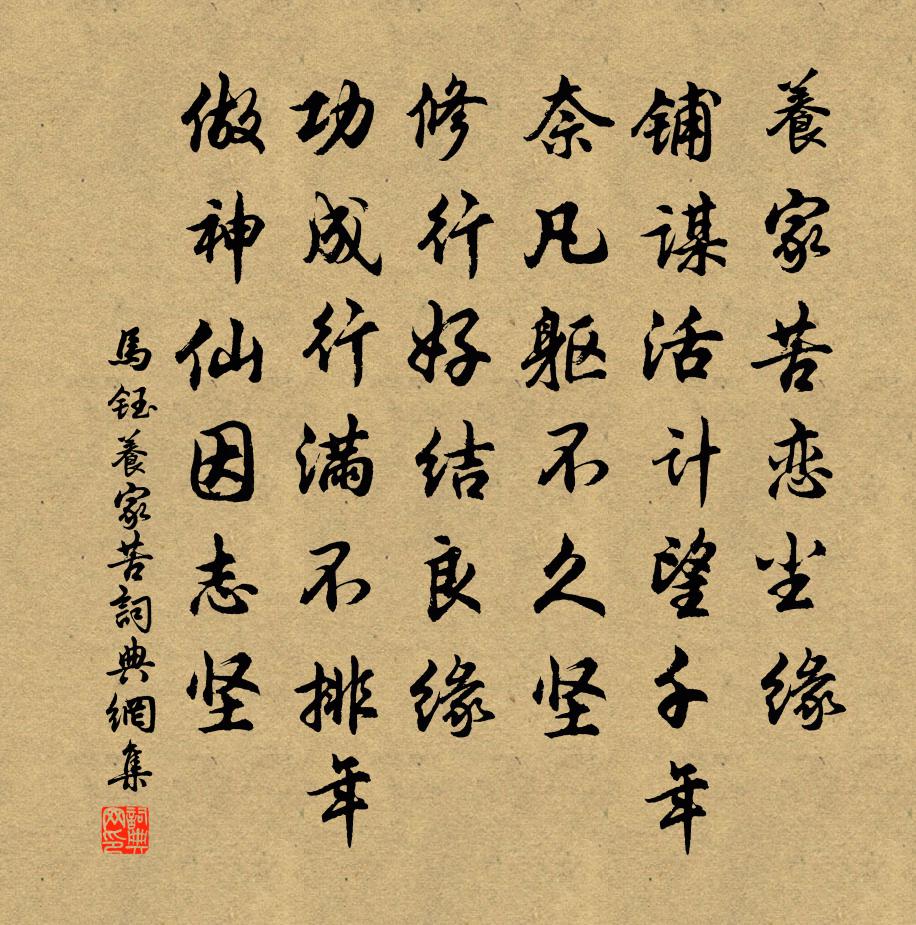 養家苦恋尘缘
铺謀活计望千年
奈凡躯不久坚
修行好结良缘
功成行满不排年
做神仙因志坚
馬钰養家苦詞典網集
詞典网印